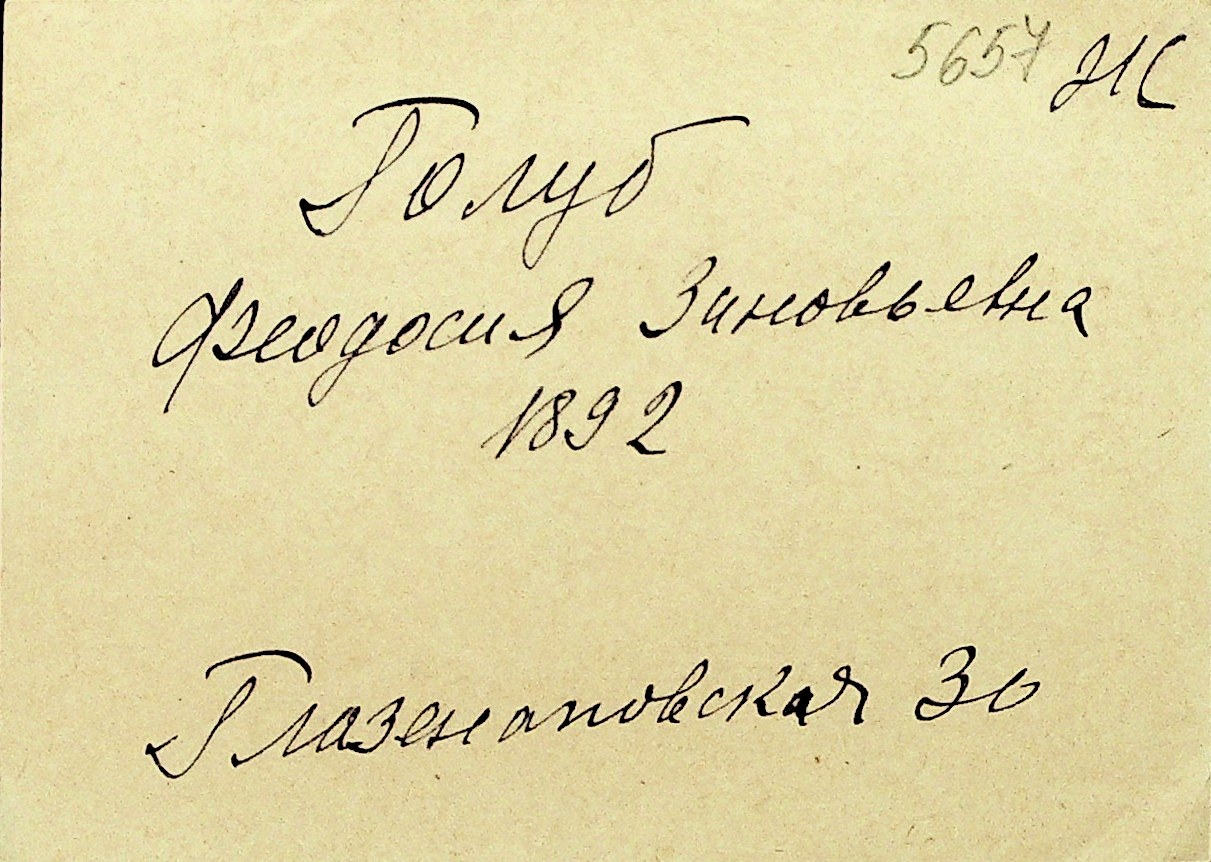 5657 ИС
Голуб
Феодосия Зиновьевна
1892
Глазенаповская 30